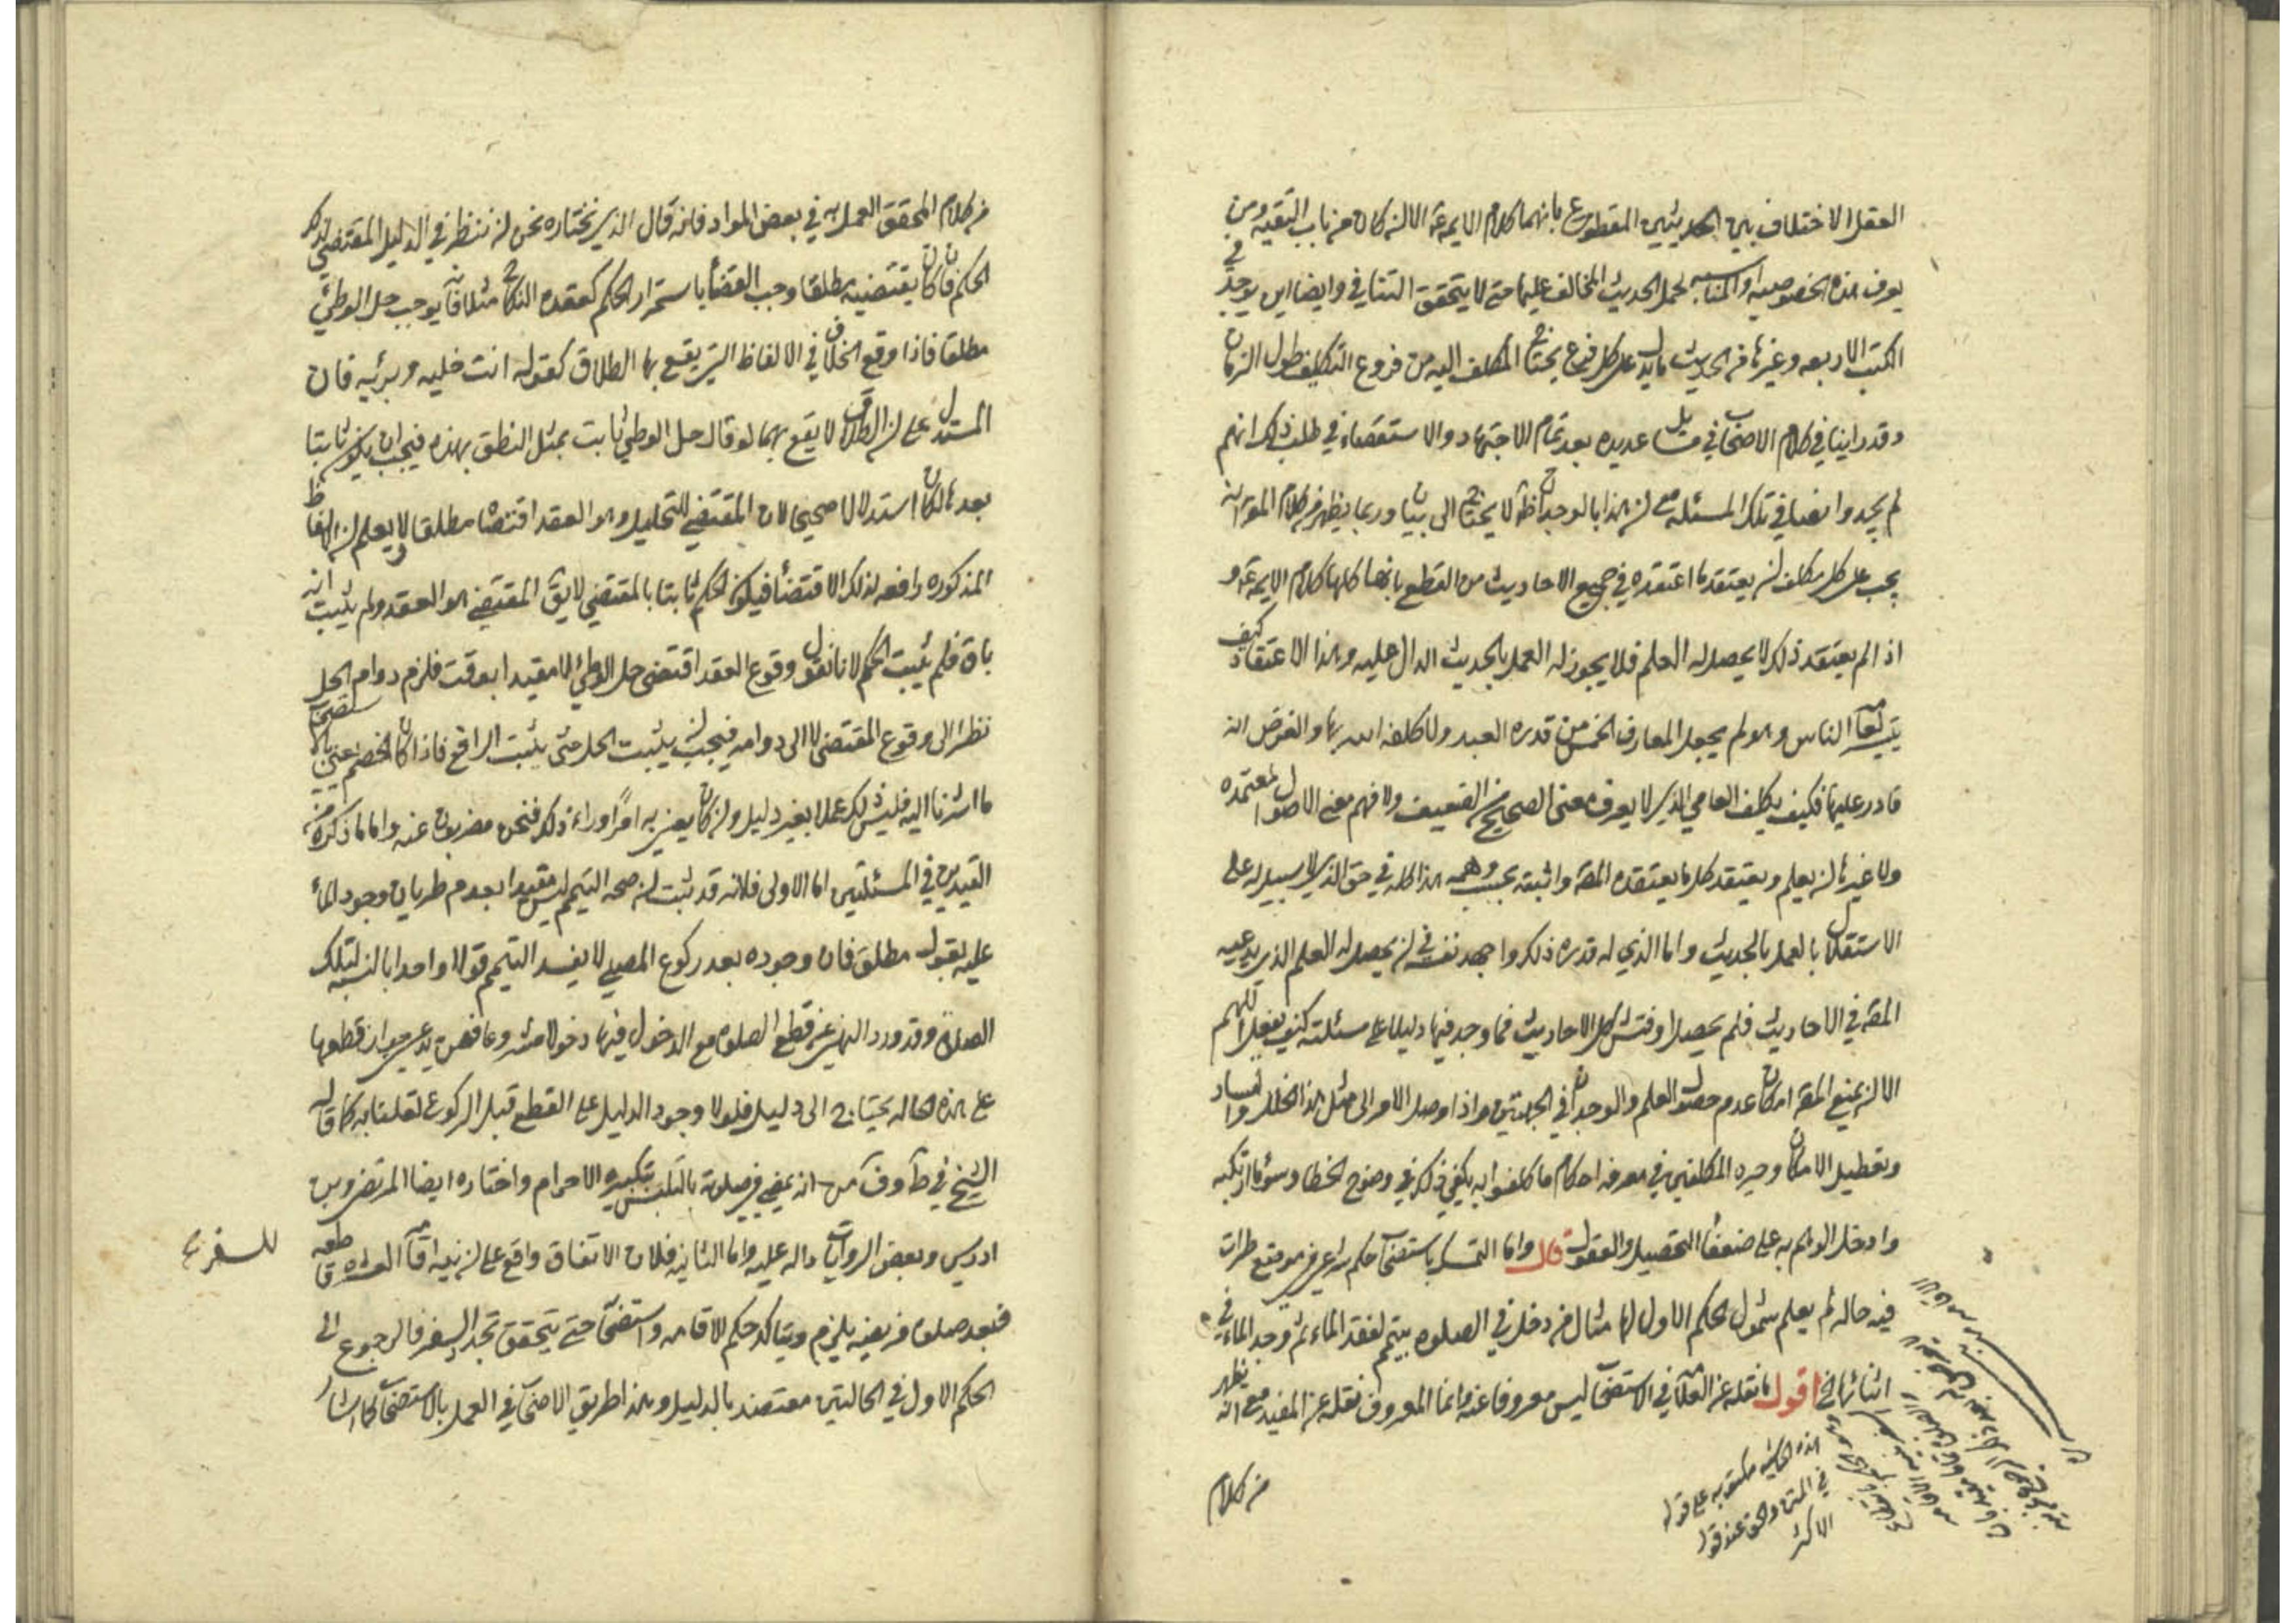 العقل الاختلاف بين الحديثين المقطوع بانهما كلام الايمة ع الا ان كان من باب التقيه ومن
يعرف هذه الخصوصيه او المناسبه لحمل الحديث المخالف عليها حتى لا يتحقق التنافي وايضا اين يوجد في
الكتب الاربعه وغيرها من الحديث ما يدل على كل فرع يحتاج المكلف اليه من فروع التكليف طول الزمان
وقد راينا في كلام الاصحاب في مسايل عديده بعد تمام الاجتهاد والاستقصاء في طلب ذلك انهم
لم يجدوا نصا في تلك المسئله مع ان هذا بالوجدان ظاهر لا يحتاج الى بيان وربما يظهر من كلام المص انه
يجب على كل مكلف ان يعتقد ما اعتقده في جميع الاحاديث من القطع بانها كلها كلام الايمة ع و
اذا لم يعتقد ذلك لا يحصل له العلم فلا يجوز له العمل بالحديث الدال عليه وهذا الاعتقاد كيف
يتيسر لعامة الناس وهو لم يجعل المعارف الخمس من قدره العبد ولا كلفه الله بها والفرض انه
قادر عليها فكيف يكلف العامي الذي لا يعرف معنى الصحيح من الضعيف ولا فهم معنى الاصول المعتمده
ولا غيرها ان يعلم ويعتقد كلما يعتقده المص واثبته بحسب وهمه هذا كله في حق الذي لا سبيل له على
الاستقلال بالعمل بالحديث واما الذي له قدره ذلك واجهد نفسه في ان يحصل له العلم الذي يدعيه
المص في الاحاديث فلم يحصل او فتش كل الاحاديث فما وجد فيها دليلا على مسئلته كيف يفعل اللهم
الا ان يمنع المص امكان عدم حصول العلم والوجدان في الجهتين واذا وصل الامر الى مثل هذا الخلل والفساد
وتعطيل الامكان وحيره المكلفين في معرفه احكام ما كلفوا به يكفي ذلك في وضوح الخطا وسوء ما ارتكبه
وادخل الوهم به على ضعفاء التحصيل والعقول قال واما التمسك باستصحاب حكم شرعي في موضع طرات
فيه حاله لم يعلم شمول الحكم الاول لها مثال من دخل في الصلوه بتيمم لفقد الماء ثم وجد الماء في
اثنائها الخ اقول ما نقله عن العلامه في الاستصحاب ليس معروفا عنه وانما المعروف نقله عن المفيد مع انه يظهر
من كلام
هذه الحاشيه مكتوبه على قوله
في المتن والحق عند قول
الاكثر
من كلام المحقق العمل به في بعض المواد فانه قال الذي نختاره نحن ان ننظر في الدليل المقتضي لذلك
الحكم فان كان يقتضيه مطلقا وجب القضاء باستمرار الحكم كعقده النكاح مثلا فانه يوجب حل الوطئ
مطلقا فاذا وقع الخلاف في الالفاظ التي يقع بها الطلاق كقوله انت خليه وبريه فان
المستدل على ان الطلاق لا يقع بهما لو قال حل الوطئ ثابت بمثل النطق بهذه فيجب ان يكون ثابتا
بعدها لكان استدلالا صحيحا لان المقتضي للتحليل وهو العقد اقتضاه مطلقا ولا يعلم ان الالفاظ
المذكوره رافعه لذلك الاقتضاء فيكون الحكم ثابتا بالمقتضي لا يق المقتضي هو العقد ولم يثبت انه
باق فلم يثبت الحكم لانا نقول وقوع العقد اقتضى حل الوطئ لا مقيدا بوقت فلزم دوام الحل
نظرا الى وقوع المقتضى لا الى دوامه فيجب ان يثبت الحل حتى يثبت الرافع فاذا كان الخصم يعني بالاستصحاب
ما اشرنا اليه فليس ذلك عملا بغير دليل وان كان يعني به امرا وراء ذلك فنحن مضربون عنه واما ما ذكره من
القيدين في المسئلتين اما الاولى فلانه قد ثبت ان صحه التيمم ليس مقيدا بعدم طريان وجود الماء
عليه بقول مطلق فان وجوده بعد ركوع المصلي لا يفسد التيمم قولا واحدا بالنسبه لتلك
الصلاة وقد ورد النهي عن قطع الصلوه مع الدخول فيها دخولا مشروعا فمن يدعي جواز قطعها
على هذه الحاله يحتاج الى دليل فلولا وجود الدليل على القطع قبل الركوع لقلنا به كما قاله
الشيخ في ط وف من انه يمضي في صلوته بالتلبس بتكبيره الاحرام واختاره ايضا المرتضى وبن
ادريس وبعض الروايات داله عليه واما الثانيه فلان الاتفاق واقع على ان نيه اقامه العشره قاطعه
للسفر
فبعد صلوه فريضه يلزم ويتاكد حكم الاقامه واستصحابه حتى يتحقق تجدد السفر فالرجوع الى
الحكم الاول في الحالتين معتضد بالدليل وهذا طريق الاصحاب في العمل بالاستصحاب كما اشار